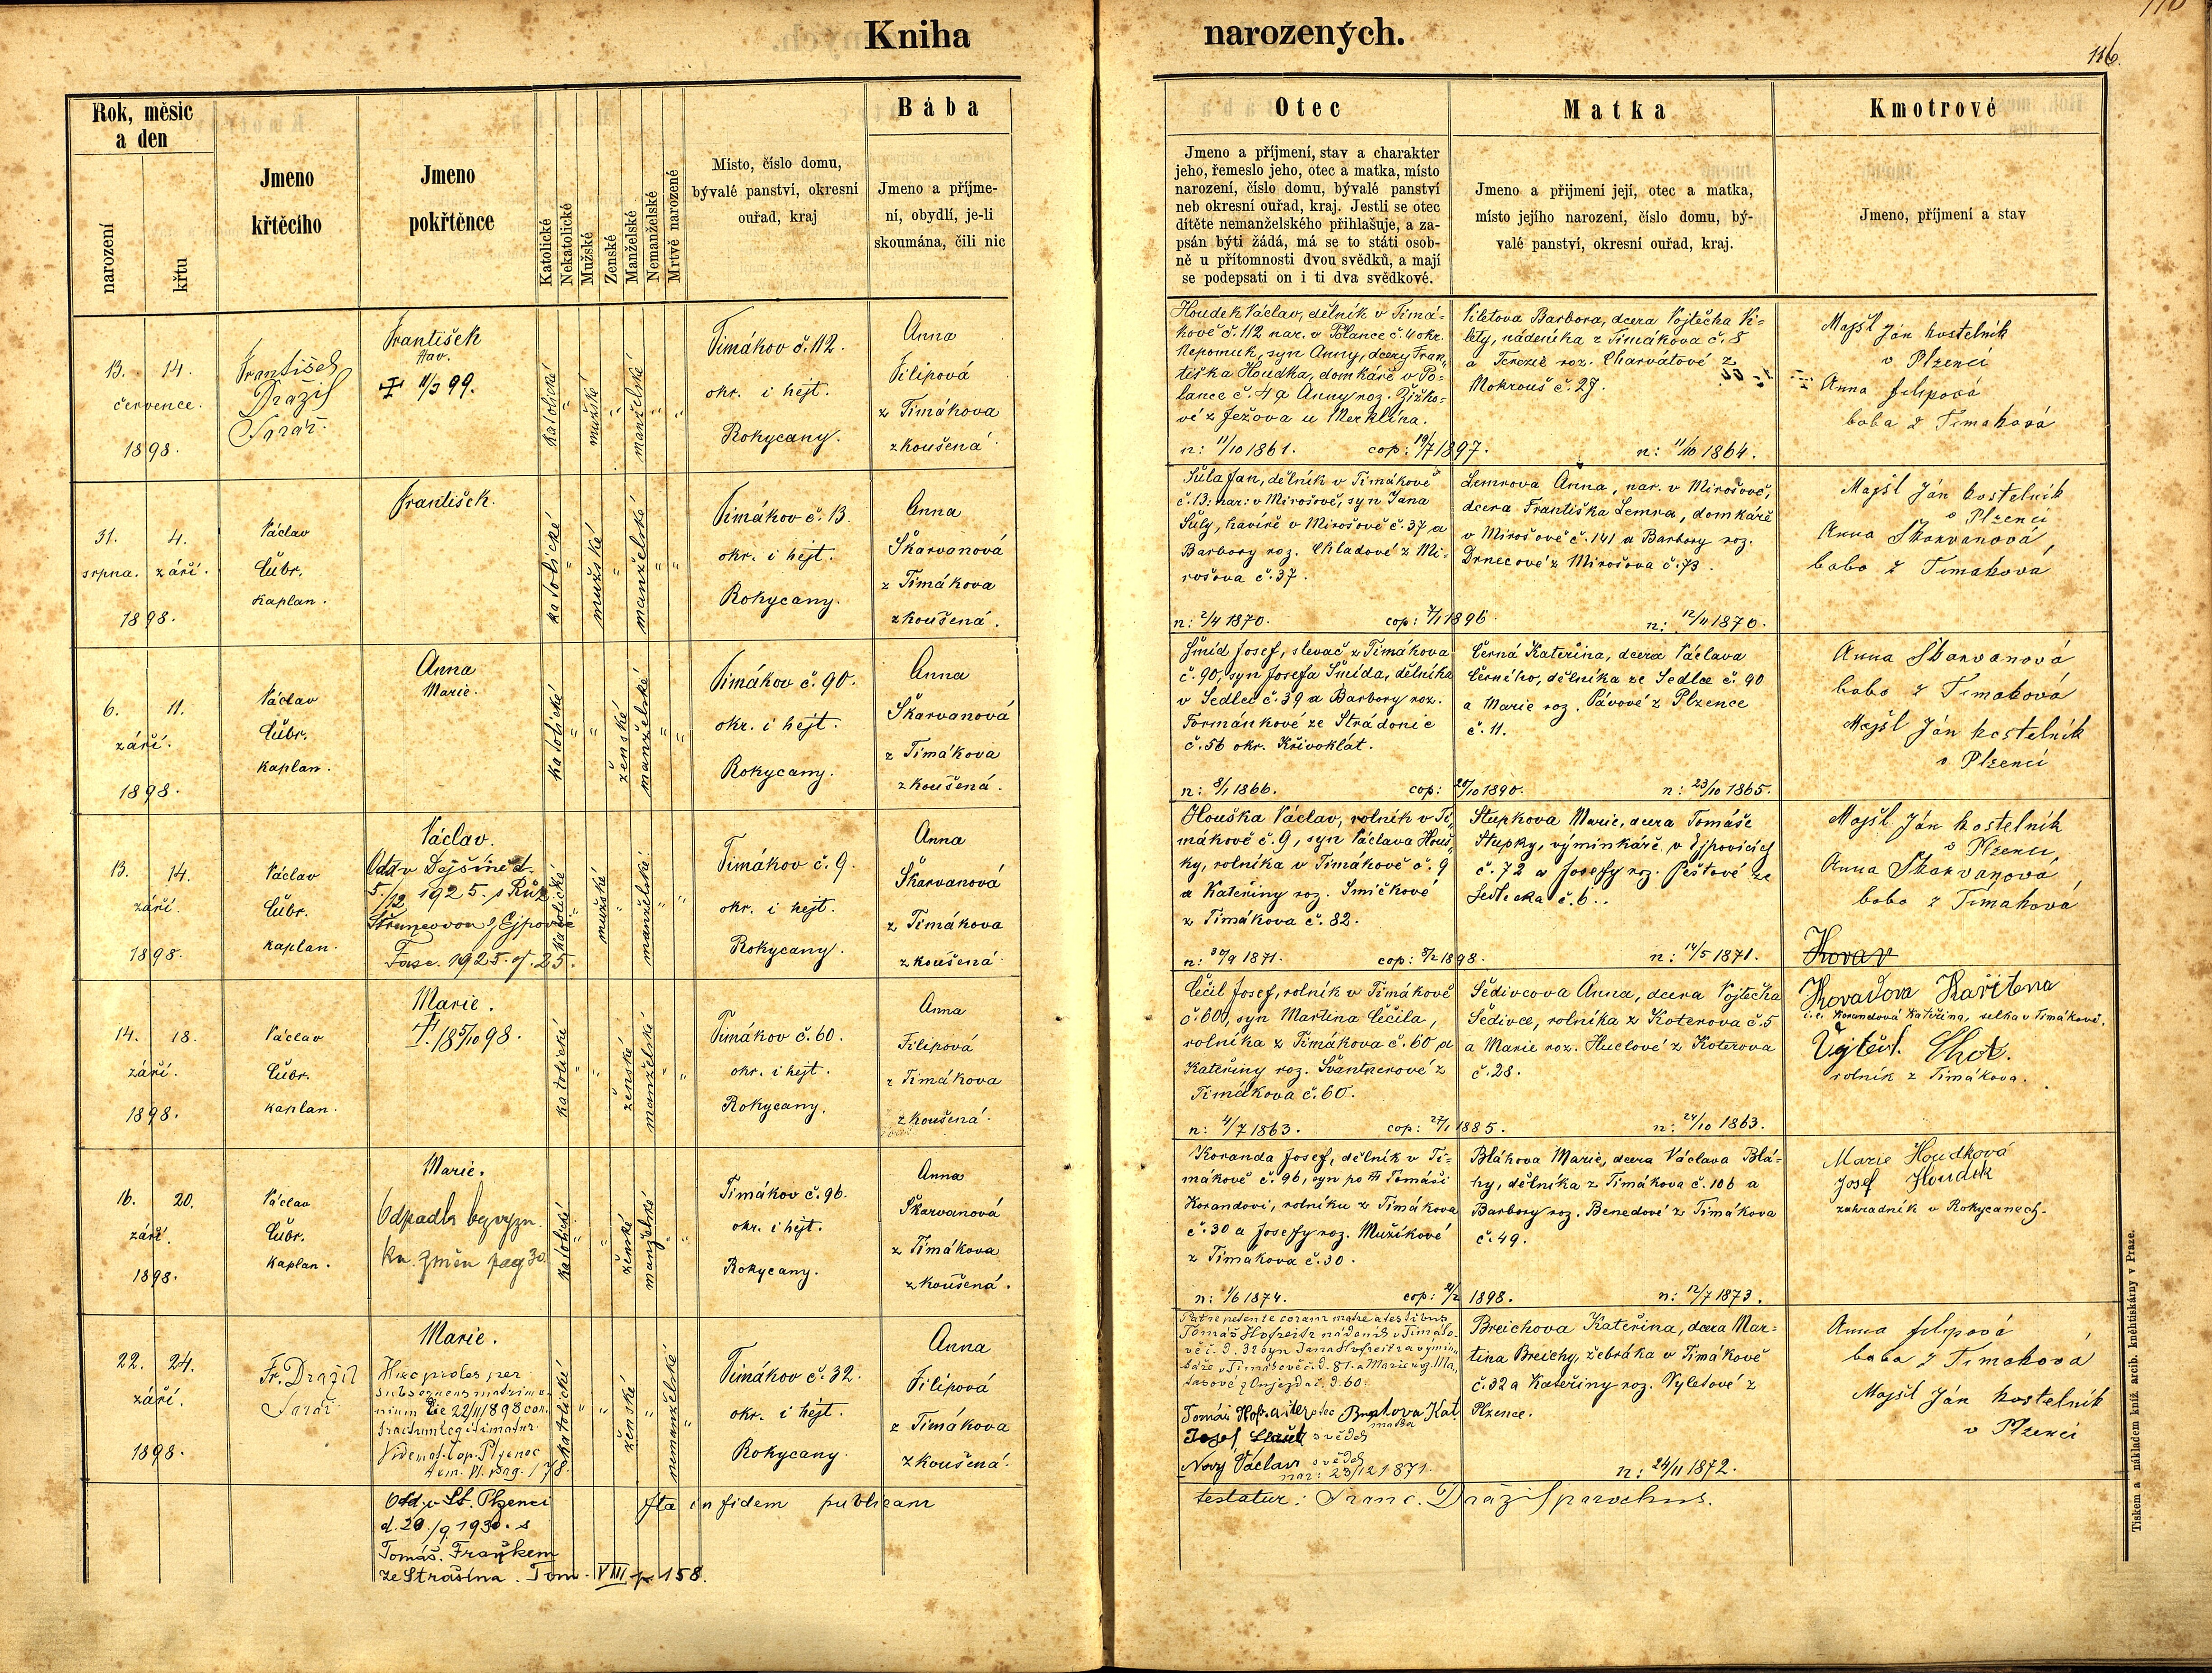 Kniha narozených.
116.
Rok, měsíc
a den
narození
křtu
Jmeno
křtěcího
Jmeno
pokřtěnce
Katolické
Nekatolické
Mužské
Ženské
Manželské
Nemanželské
Mrtvě narozené
Místo, číslo domu,
bývalé panství, okresní
ouřad, kraj
Bába
Jmeno a příjme-
ní, obydlí, je-li
skoumána, čili nic
Otec
Jmeno a příjmení, stav a charakter
jeho, řemeslo jeho, otec a matka, místo
narození, číslo domu, bývalé panství
neb okresní ouřad, kraj. Jestli se otec
dítěte nemanželského přihlašuje, a za-
psán býti žádá, má se to státi osob-
ně u přítomnosti dvou svědků, a mají
se podepsati on i ti dva svědkové.
Matka
Jmeno a přijmení její, otec a matka,
místo jejího narození, číslo domu, bý-
valé panství, okresní ouřad, kraj.
Kmotrové
Jmeno, příjmení a stav
13. 14.
července.
1898.
František
Dražil
farář.
František
11/3 99.
katolické " mužské " manželské " "
Timákov č. 112.
okr. i hejt.
Rokycany.
Anna
Filipová
z Timákova
zkoušená
Houdek Václav, dělník v Timá-
kově č. 112 nar. v Polance č. 4 okr.
Nepomuk, syn Anny, dcery Fran-
tiška Houdka, domkáře v Po-
lance č. 4 a Anny roz. Žižko-
vé z Ježova u Merklína.
n: 11/10 1861. cop: 19/7 1897.
Viletova Barbora, dcera Vojtěcha Vi-
lety, nádeníka z Timákova č. 8
a Terezie roz. Charvátové z
Mokrouš č. 27.
n: 11/10 1864.
Majšl Ján kostelník
v Plzenci
Anna filipová
baba z Timaková
31. 4.
srpna. září.
1898.
Václav
Čubr.
kaplan.
František.
katolické " mužské " manželské " "
Timákov č. 13.
okr. i hejt.
Rokycany.
Anna
Škarvanová
z Timákova
zkoušená.
Šula Jan, dělník v Timákově
č. 13. nar: v Mirošově, syn Jana
Šuly, havíře v Mirošově č. 37 a
Barbory roz. Chladové z Mi-
rošova č. 37.
n: 2/4 1870. cop: 7/1 1896.
Lemrova Anna, nar. v Mirošově,
dcera Františka Lemra, domkáře
v Mirošově č. 141 a Barbory roz.
Drnecové z Mirošova č. 73.
n: 12/11 1870.
Majšl Ján kostelník
v Plzenci
Anna Skarvanová
baba z Timaková
6. 11.
září.
1898.
Václav
Čubr.
kaplan.
Anna
Marie.
katolické " " ženské manželské " "
Timákov č. 90.
okr. i hejt.
Rokycany.
Anna
Škarvanová
z Timákova
zkoušená.
Šmíd Josef, slevač z Timákova
č. 90, syn Josefa Šmída, dělníka
v Sedlci č. 39 a Barbory roz.
Formánkové ze Strádonic
č. 56 okr. Křivoklát.
n: 8/1 1866. cop: 20/10 1890.
Černá Kateřina, dcera Václava
Černého, dělníka ze Sedlce č. 90
a Marie roz. Pávové z Plzence
č. 11.
n: 23/10 1865.
Anna Skarvanová
baba z Timaková
Majšl Ján kostelník
v Plzenci
13. 14.
září.
1898.
Václav
Čubr.
kaplan.
Václav.
Odd v Dejšině d.
5./12 1925. s Růž.
z Ejpovic
Fasc. 1925. 25.
katolické " mužské " manželské " "
Timákov č. 9.
okr. i hejt.
Rokycany.
Anna
Škarvanová
z Timákova
zkoušená
Houška Václav, rolník v Ti-
mákově č. 9, syn Václava Houš-
ky, rolníka v Timákově č. 9
a Kateřiny roz. Smíčkové
z Timákova č. 82.
n: 30/9 1871. cop: 8/2 1898.
Stupkova Marie, dcera Tomáše
Stupky, výminkáře v Ejpovicích
č. 72 a Josefy roz. Peštové ze
Sedlecka č. 6.
n: 14/5 1871.
Majšl Ján kostelník
v Plzenci
Anna Skarvanová
baba z Timaková
14. 18.
září.
1898.
Václav
Čubr.
kaplan.
Marie.
† 18 5/10 98.
katolické " " ženské manželské " "
Timákov č. 60.
okr. i hejt.
Rokycany.
Anna
Filipová
z Timákova
zkoušená
Čečil Josef, rolník v Timákově
č. 60, syn Martina Čečila,
rolníka z Timákova č. 60 a
Kateřiny roz. Švantnerové z
Timákova č. 60.
n: 4/7 1863. cop: 27/1 1885.
Šedivcova Anna, dcera Vojtěcha
Šedivce, rolníka z Koterova č. 5
a Marie roz. Huclové z Koterova
č. 28.
n: 24/10 1863.
i. e. Korandová Kateřina, selka v Timákově.
rolník z Timákova.
16. 20.
září.
1898.
Václav
Čubr.
kaplan.
Marie.
Odpadla bez vyzn.
kn. změn pag 30.
katolické " " ženské manželské " "
Timákov č. 96.
okr. i hejt.
Rokycany.
Anna
Škarvanová
z Timákova
zkoušená.
Koranda Josef, dělník v Ti-
mákově č. 96, syn po † Tomáši
Korandovi, rolníku z Timákova
č. 30 a Josefy roz. Mužíkové
z Timákova č. 30.
n: 1/6 1874. cop: 21/2 1898.
Bláhova Marie, dcera Václava Blá-
hy, dělníka z Timákova č. 106 a
Barbory roz. Benedové z Timákova
č. 49.
n: 12/7 1873.
Marie Houdková
Josef Houdek
zahradník v Rokycanech.
22. 24.
září.
1898.
Fr. Dražil
farář
Marie.
Haec proles per
subsequens matrimo-
nium die 22/11 1898 con-
tractum legitimatur
katolické " " ženské " nemanželské "
Timákov č. 32.
okr. i hejt.
Rokycany.
Anna
Filipová
z Timákova
zkoušená.
Patre petente coram matre a testibus
Tomáš Hofreitr nádeník v Timáko-
Tomáš otec Kat.
matka
Josef svědek
Nový Václav svědek
nar: 23/12 1871.
Breichova Kateřina, dcera Mar-
tina Breichy, žebráka v Timákově
č. 32 a Kateřiny roz. Vyletové z
Plzence.
n: 24/11 1872.
Anna filipová
baba z Timaková
Majšl Ján kostelník
v Plzenci
Odd. v St. Plzenci
d. 20./9. 1930. s
Tomáš. Fraňkem
ze Strašína. Tom. VIII p. 158.
Ita in fidem publicam
testatur: Franc. Dražil parochus.
Tiskem a nákladem kníž. arcib. kněhtiskárny v Praze.